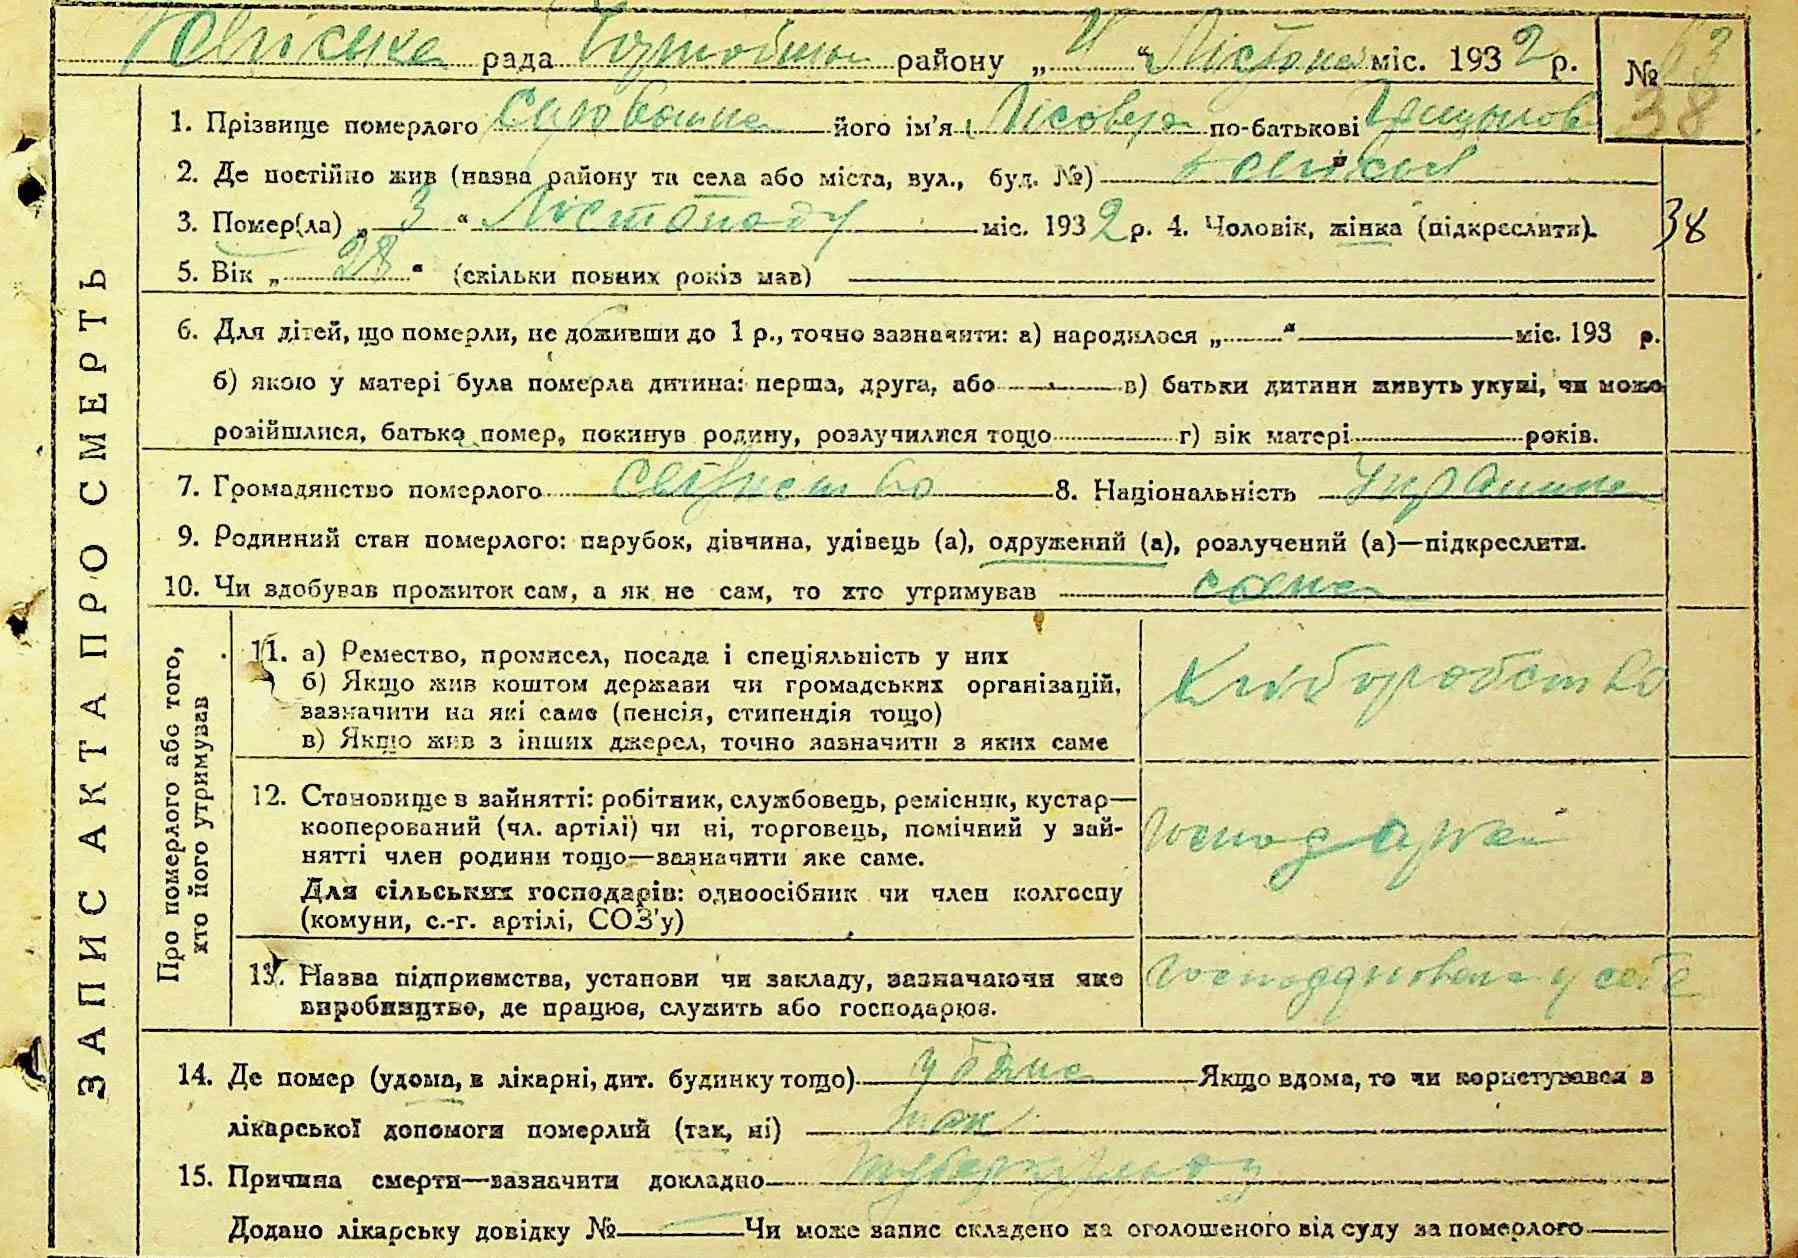 рада району „ 4 “ Листопа міс. 1932 р. № 63
38
1. Прізвище померлого його ім'я по-батькові
2. Де постійно жив (назва району та села або міста, вул., буд. №)
3. Помер(ла) „ 3 “ Листопаду міс. 1932 р. 4. Чоловік, жінка (підкреслити). 38
5. Вік „ 28 “ (скільки повних років мав)
6. Для дітей, що померли, не доживши до 1 р., точно зазначити: а) народилося „ “ міс. 193 р.
б) якою у матері була померла дитина: перша, друга, або в) батьки дитини живуть укупі, чи може
розійшлися, батько помер, покинув родину, розлучилися тощо г) вік матері років.
7. Громадянство померлого 8. Національність Українка
9. Родинний стан померлого: парубок, дівчина, удівець (а), одружений (а), розлучений (а)—підкреслити.
10. Чи здобував прожиток сам, а як не сам, то хто утримував сама
ЗАПИС АКТА ПРО СМЕРТЬ
Про померлого або того,
хто його утримував
11. а) Ремество, промисел, посада і спеціяльність у них
б) Якщо жив коштом держави чи громадських організацій,
зазначити на які саме (пенсія, стипендія тощо)
в) Якщо жив з інших джерел, точно зазначити з яких саме
Хліборобство
12. Становище в зайнятті: робітник, службовець, ремісник, кустар—
кооперований (чл. артілі) чи ні, торговець, помічний у зай-
нятті член родини тощо—зазначити яке саме.
Для сільських господарів: одноосібник чи член колгоспу
(комуни, с.-г. артілі, СОЗ'у)
13. Назва підприємства, установи чи закладу, зазначаючи яке
виробництво, де працює, служить або господарює.
у себе
14. Де помер (удома, в лікарні, дит. будинку тощо) Якщо вдома, то чи користувався з
лікарської допомоги померлий (так, ні) так
15. Причина смерти—зазначити докладно
Додано лікарську довідку № Чи може запис складено на оголошеного від суду за померлого